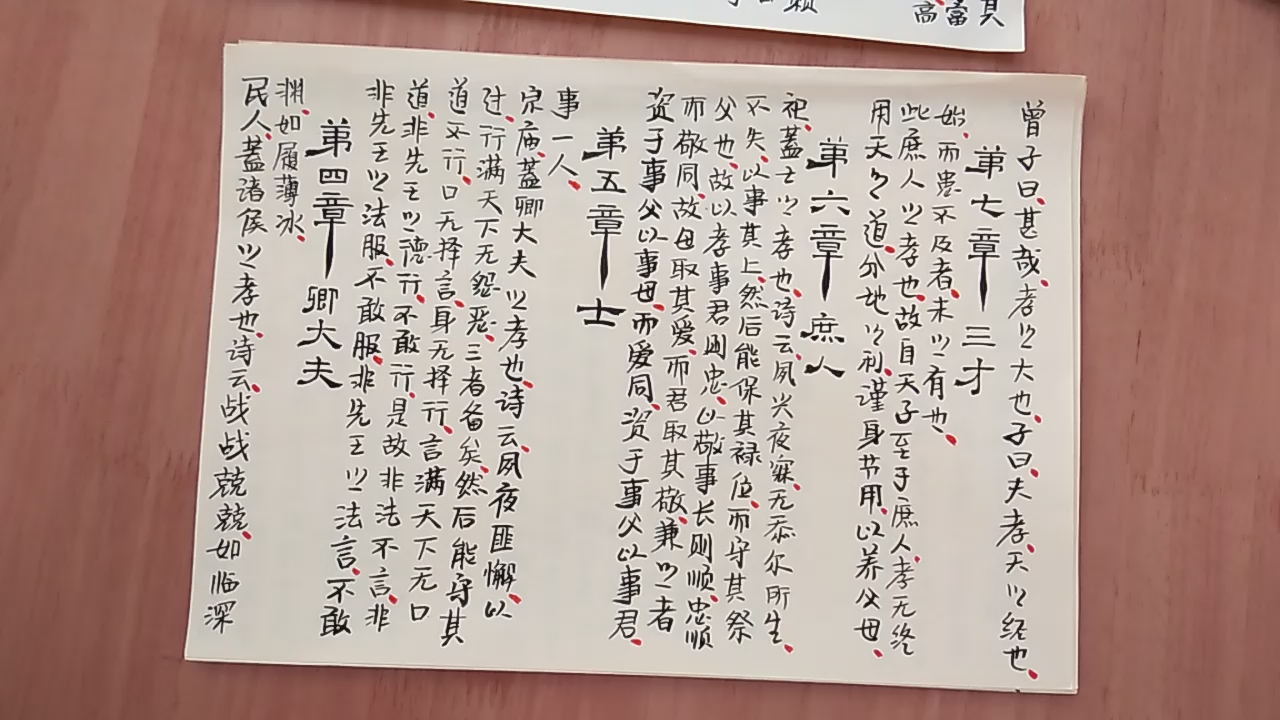 民人、蓋诸侯之孝也、诗云、战战兢兢、如临深
渊、如履薄冰、
第四章—卿大夫
非先王之法服、不敢服、非先王之法言、不敢
道、非先王之德行、不敢行、是故非法不言、非
道不行、口无择言、身无择行、言满天下无口
过、行满天下无怨恶、三者备矣、然后能守其
宗庙、蓋卿大夫之孝也、诗云、夙夜匪懈、以
事一人、
第五章—士
资于事父以事母、而爱同、资于事父以事君、
而敬同、故母取其爱、而君取其敬、兼之者
父也、故以孝事君则忠、以敬事长则顺、忠顺
不失、以事其上、然后能保其禄位、而守其祭
祀、蓋士之孝也、诗云、夙兴夜寐、无忝尔所生、
第六章—庶人
用天之道、分地之利、谨身节用、以养父母、
此庶人之孝也、故自天子至于庶人、孝无终
始、而患不及者、未之有也、
第七章—三才
曾子曰、甚哉、孝之大也、子曰、夫孝、天之经也、
高
富
其